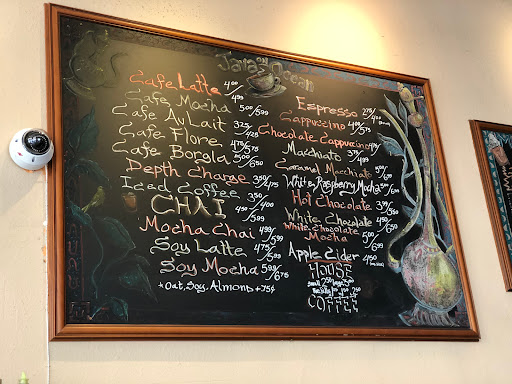 Java on Ocean
Cafe Latte 4.00/4.99
Cafe Mocha 5.00/5.99
Cafe Au Lait 3.25/4.25
Cafe Flore 4.75/5.75
Cafe Borgia 5.00/6.50
Depth Charge 3.50/4.75
Iced Coffee 3.50/4.00
CHAI 4.50/5.50
Mocha Chai 4.99/5.99
Soy Latte 4.75/5.99
Soy Mocha 5.99/6.75
*Oat, Soy, Almond +75¢
Espresso 2.75/4.00
Cappuccino 4.00/5.75
Chocolate Cappuccino
Macchiato 3.75/4.99
Caramel Macchiato
White Raspberry Mocha
Hot Chocolate 3.99/5.50
White Chocolate 4.50/6.50
White Chocolate
Mocha 5.00/6.99
Apple Cider 4.50
HOUSE
small
COFFEE